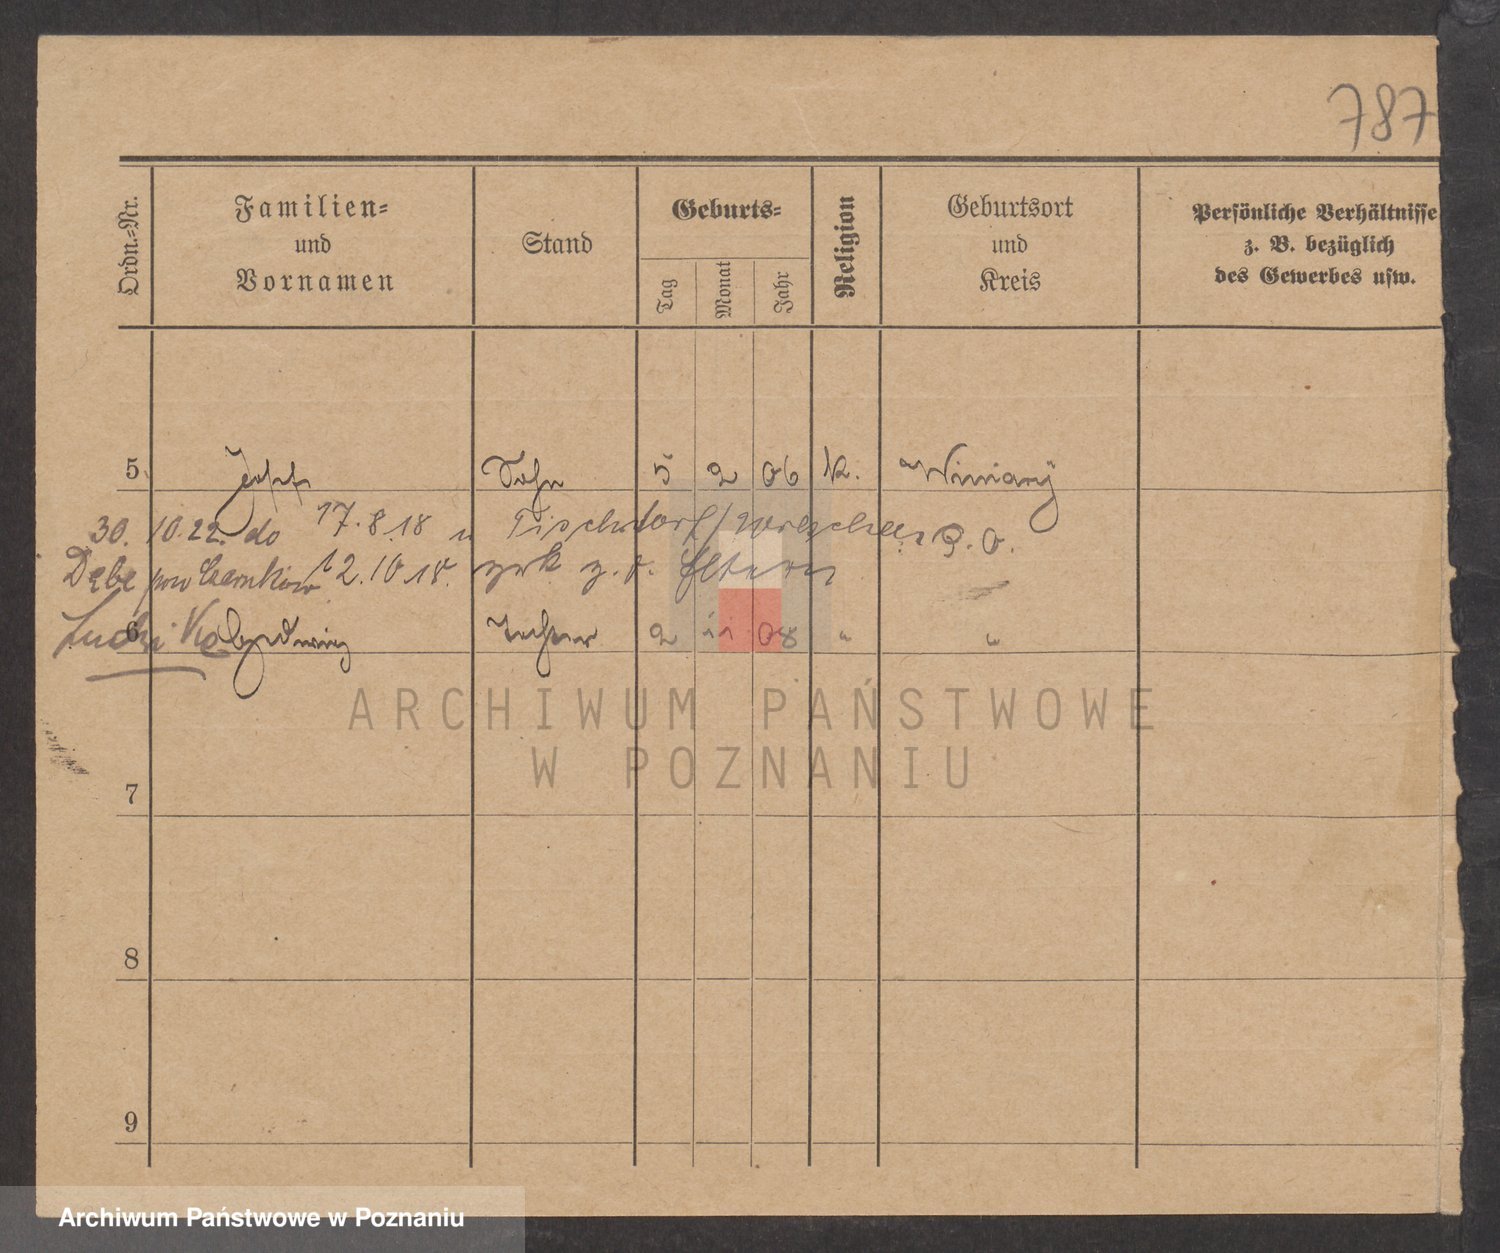 787
Ordn.=Nr.
Familien=
und
Vornamen
Stand
Geburts=
Tag
Monat
Jahr
Religion
Geburtsort
und
Kreis
Persönliche Verhältnisse
z. B. bezüglich
des Gewerbes usw.
5 Josef Sohn 5 2 06 K. Winiary
30. 10.22. do 17.8.18 n Tischdorf / Wreschen P.O.
Dębe pow Czarnków 12.10.18. zrk z. d. Eltern
6 Hedwig Tochter 2 11 08 " "
ARCHIWUM PAŃSTWOWE
W POZNANIU
7
8
9
Archiwum Państwowe w Poznaniu